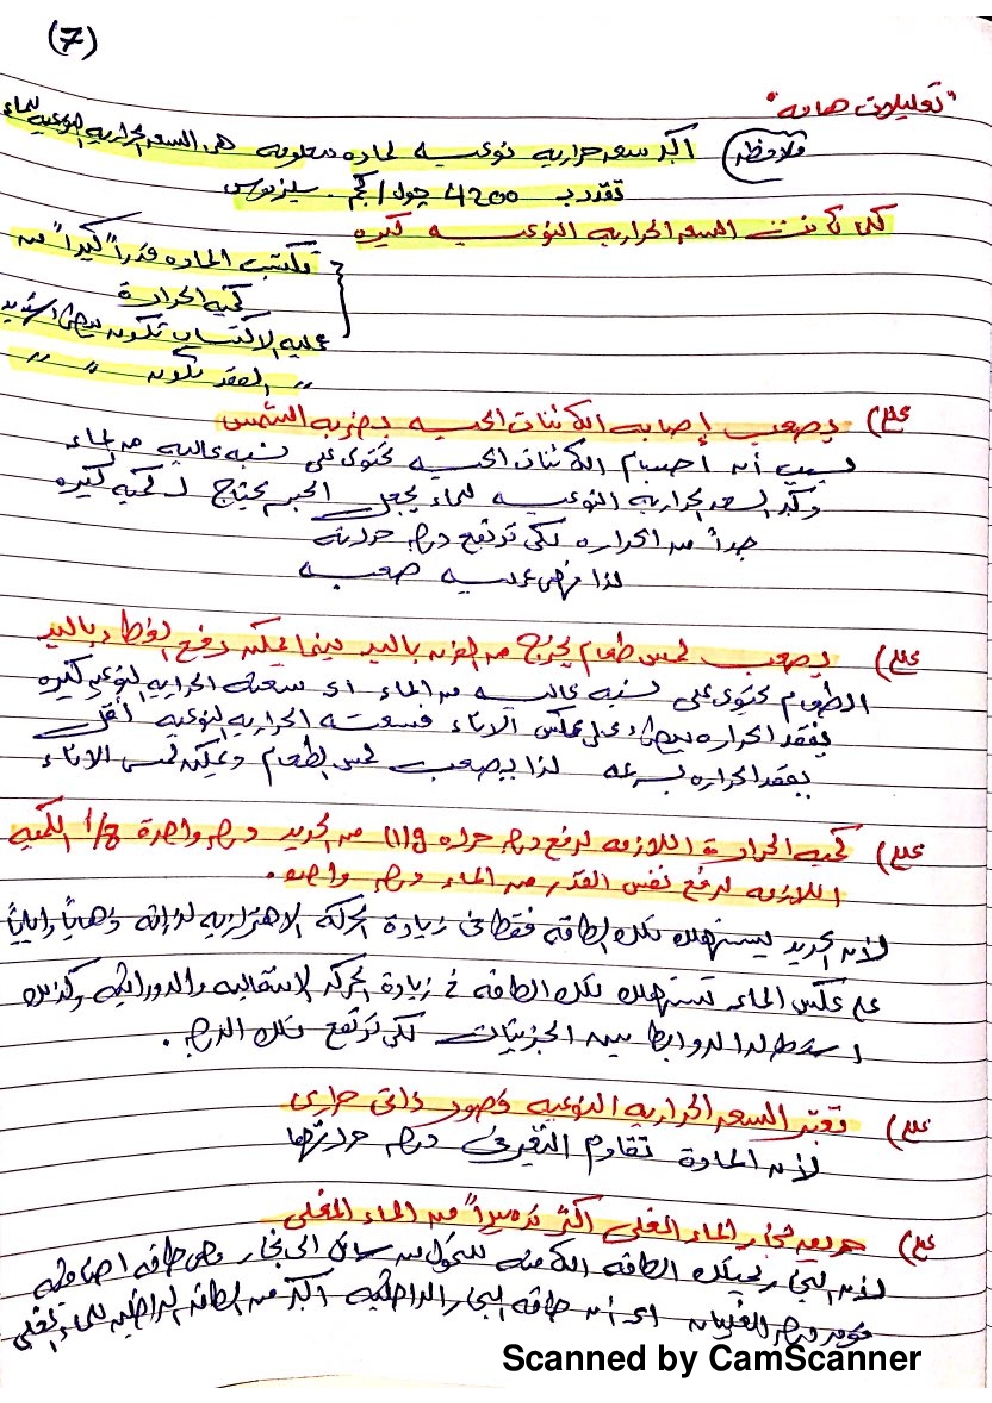 (7)
"تعليلات هامه"
ملاحظه) أكبر سعه حراريه نوعيه لماده معلومه هى السعه الحراريه النوعيه للماء
تقدر بـ 4200 جول/كجم. سليزيوس
كلما كانت السعه الحراريه النوعيه كبيره
تكتسب الماده قدراً "كبيراً" من
كميه الحرارة
عمليه الاكتساب تكون ببطئ شديد
〃 الفقد تكون 〃 〃
علل) يصعب إصابه الكائنات الحيه بضربه الشمس
بسبب أن أجسام الكائنات الحيه تحتوى على نسبه عاليه من الماء
وكبر السعه الحراريه النوعيه للماء يجعل الجسم يحتاج لكميه كبيره
جداً من الحراره لكى ترتفع درجه حرارته
لذا فهى عمليه صعبه
علل) يصعب لمس طعام يخرج من الفرن باليد بينما يمكن رفع الغطاء باليد
الطعام يحتوى على نسبه عاليه من الماء اى سعته الحراريه النوعيه كبيره
يفقد الحراره ببطئ على عكس الاناء فسعته الحراريه النوعيه أقل
يفقد الحراره بسرعه لذا يصعب لمس الطعام ويمكن لمس الاناء
علل) كميه الحرارة اللازمه لرفع درجه حراره (1)g من الحديد درجه واحدة 1/8 الكميه
اللازمه لرفع نفس القدر من الماء درجه واحده.
لأن الحديد يستهلك تلك الطاقه فقط فى زيادة الحركه الاهتزازيه لذراته ذهاباً واياباً
على عكس الماء تستهلك تلك الطاقه فى زيادة الحركه الانتقاليه والدورانيه وكذلك
استطاله الروابط بين الجزيئات لكى ترتفع تلك الدرجه.
علل) تعتبر السعه الحراريه النوعيه قصور ذاتى حرارى
لأن المادة تقاوم التغير فى درجه حرارتها
علل) حروق بخار الماء المغلى اكثر تدميراً" من الماء المغلى
لأن البخار يمتلك الطاقه الكامنه للتحول من سائل الى بخار وهى طاقه اضافيه
درجه الغليان اى أن طاقه البخار الداخليه اكبر من الطاقه الداخليه للماء المغلى
Scanned by CamScanner